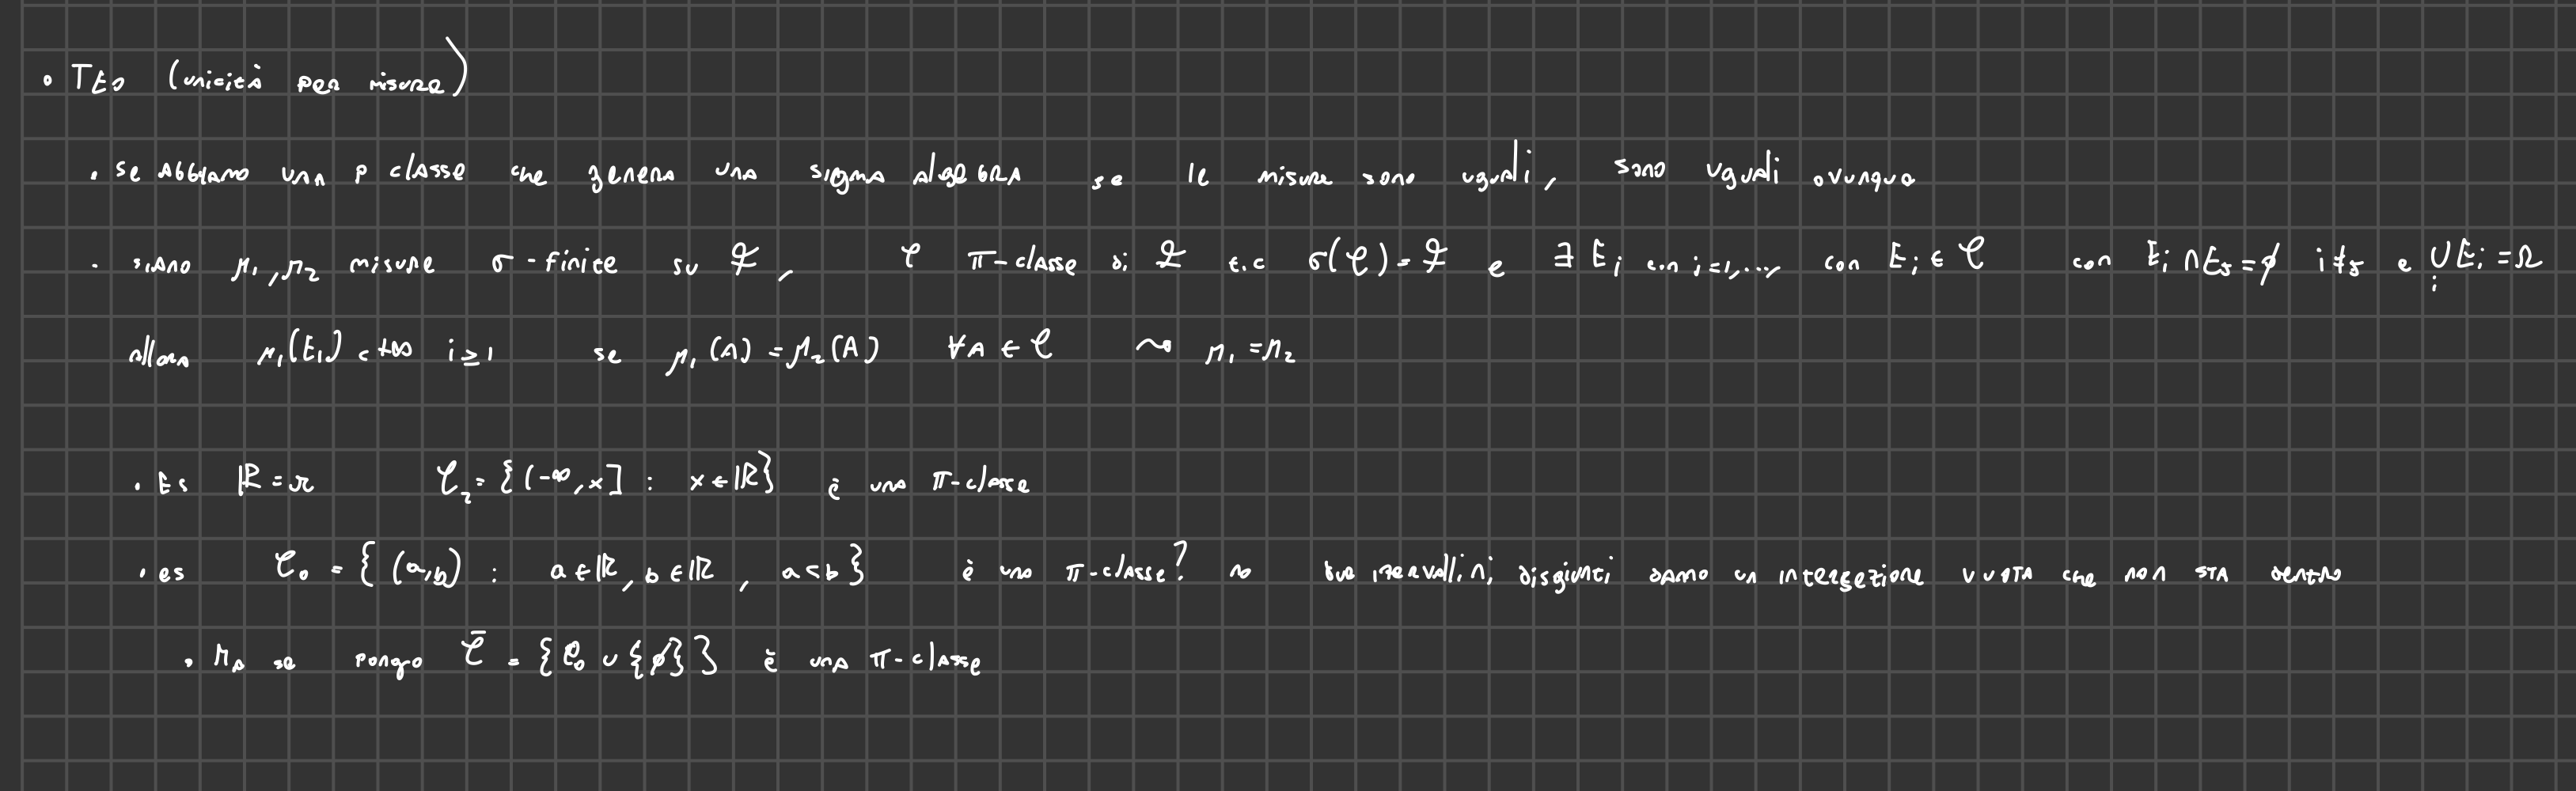 • TEO (unicità per misure)
• se abbiamo una p classe che genera una sigma algebra se le misure sono uguali, sono uguali ovunque
• siano μ₁, μ₂ misure σ-finite su ℱ, 𝒞 π-classe di ℱ t.c σ(𝒞) = ℱ e ∃ Eᵢ con i=1,..., con Eᵢ ∈ 𝒞 con Eᵢ ∩ Eⱼ = ∅ i≠j e ⋃ᵢ Eᵢ = Ω
allora μ₁(E₁) < +∞ i ≥ 1 se μ₁(A) = μ₂(A) ∀A ∈ 𝒞 ⇝ μ₁ = μ₂
• Es ℝ = Ω 𝒞₂ = {(-∞, x] : x ∈ ℝ} è una π-classe
• es 𝒞₀ = {(a,b) : a ∈ ℝ, b ∈ ℝ, a < b} è una π-classe? no due disgiunti danno un intersezione vuota che non sta dentro
• Ma se pongo 𝒞̄ = {𝒞₀ ∪ {∅}} è una π-classe